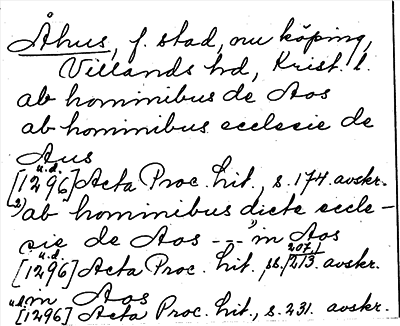 Åhus, f. stad, nu köping,
Villands hd, Krist. l.
ab hominibus de Aos
ab hominibus ecclesie de
Aus
u.d.
[1296] Acta Proc. Lit., s. 174. avskr.
2) ab hominibus dicte eccle-
sie de Aos - - - "in Aos
u.d.
[1296] Acta Proc. Lit. ss. 207, 213. avskr.
in Aos
u.d. [1296] Acta Proc. Lit., s. 231. avskr.